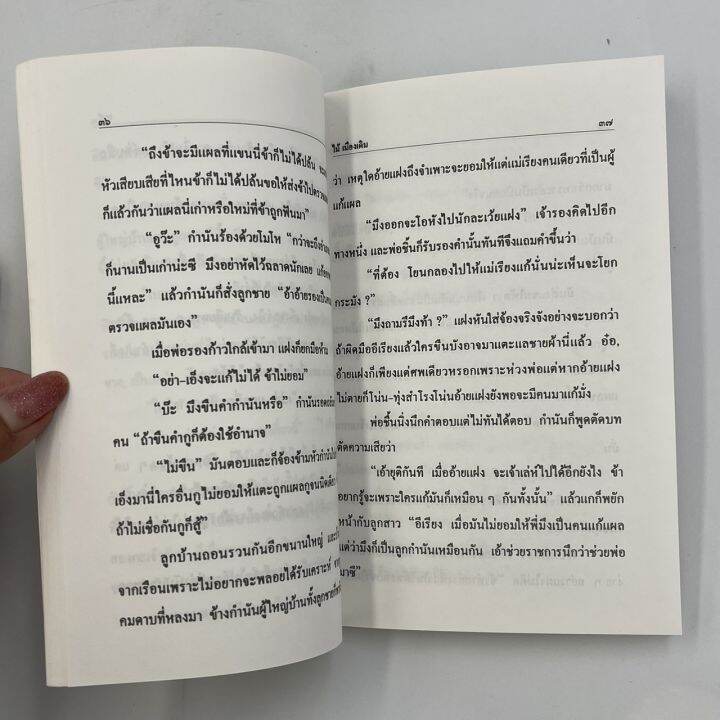 ๓๖
“ถึงข้าจะมีแผลที่แขนนี่ข้าก็ไม่ได้ปล้น
หัวเสียบเสียที่ไหนข้าก็ไม่ได้ปล้นขอให้ส่งข้าไปตรวจ
ก็แล้วกันว่าแผลนี่เก่าหรือใหม่ที่ข้าถูกฟันมา”
“อูว๊ะ” กำนันร้องด้วยโมโห “กว่าจะถึงอำเภอ
ก็นานเป็นเก่าน่ะซี มึงอย่าหัดไว้ฉลาดนักเลย
นี้แหละ” แล้วกำนันก็สั่งลูกชาย “อ้ายอ้ายรองเป็น
ตรวจแผลมันเอง”
เมื่อพ่อรองก้าวใกล้เข้ามา แฝงก็ยกมือห้าม
“อย่า-เอ็งจะแก้ไม่ได้ ข้าไม่ยอม”
“บ๊ะ มึงขืนคำกำนันหรือ” กำนันรอด
คน “ถ้าขืนคำกูก็ต้องใช้อำนาจ”
“ไม่ขืน” มันตอบและก็จ้องข้ามหัวกำนัน
เอ็งมานี่ใครอื่นกูไม่ยอมให้แตะถูกแผลกูจนนิดเดียว
ถ้าไม่เชื่อกันกูก็สู้”
ลูกบ้านถอนรวนกันอีกขนานใหญ่
จากเรือนเพราะไม่อยากจะพลอยได้รับเคราะห์
คมดาบที่หลงมา ข้างกำนันผู้ใหญ่บ้านทั้งลูกชาย
ไม้ เมืองเดิม
๓๗
ว่า เหตุใดอ้ายแฝงถึงจำเพาะจะยอมให้แต่แม่เรียงคนเดียวที่เป็นผู้
แก้แผล
“มึงออกจะโอหังไปนักละเว้ยแฝง” เจ้ารองคิดไปอีก
ทางหนึ่ง และพ่อชิ้นก็รับรองคำนั้นทันทีจึงแถมคำขึ้นว่า
“ที่ต้อง โยนกลองไปให้แม่เรียงแก้นั่นน่ะเห็นจะโยก
กระมัง ?”
“มึงถามรึมึงท้า ?” แฝงหันใส่จ้องจริงจังอย่างจะบอกว่า
ถ้าผิดมืออีเรียงแล้วใครขืนบังอาจมาแตะแลชายผ้านี่แล้ว อ๋อ,
อ้ายแฝงก็เพียงแต่ศพเดียวหรอกเพราะห่วงพ่อแต่หากอ้ายแฝง
ไม่ตายก็โน่น-ทุ่งสำโรงโน่นอ้ายแฝงยังพอจะมีคนมาแก้มั่ง
พ่อชิ้นนิ่งนึกคำตอบแต่ไม่ทันได้ตอบ กำนันก็พูดตัดบท
ตัดความเสียว่า
“เอ้ายุติกันที เมื่อ้อายแฝง จะเจ้าเล่ห์ไปได้อีกยังไง ข้า
อยากรู้จะเพราะใครแก้มันก็เหมือน ๆ กันทั้งนั้น” แล้วแกก็พยัก
หน้ากับลูกสาว “อีเรียง เมื่อมันไม่ยอมให้พี่มึงเป็นคนแก้แผล
แต่ว่ามึงก็เป็นลูกกำนันเหมือนกัน เอ้าช่วยราชการนึกว่าช่วยพ่อ
มาซี”